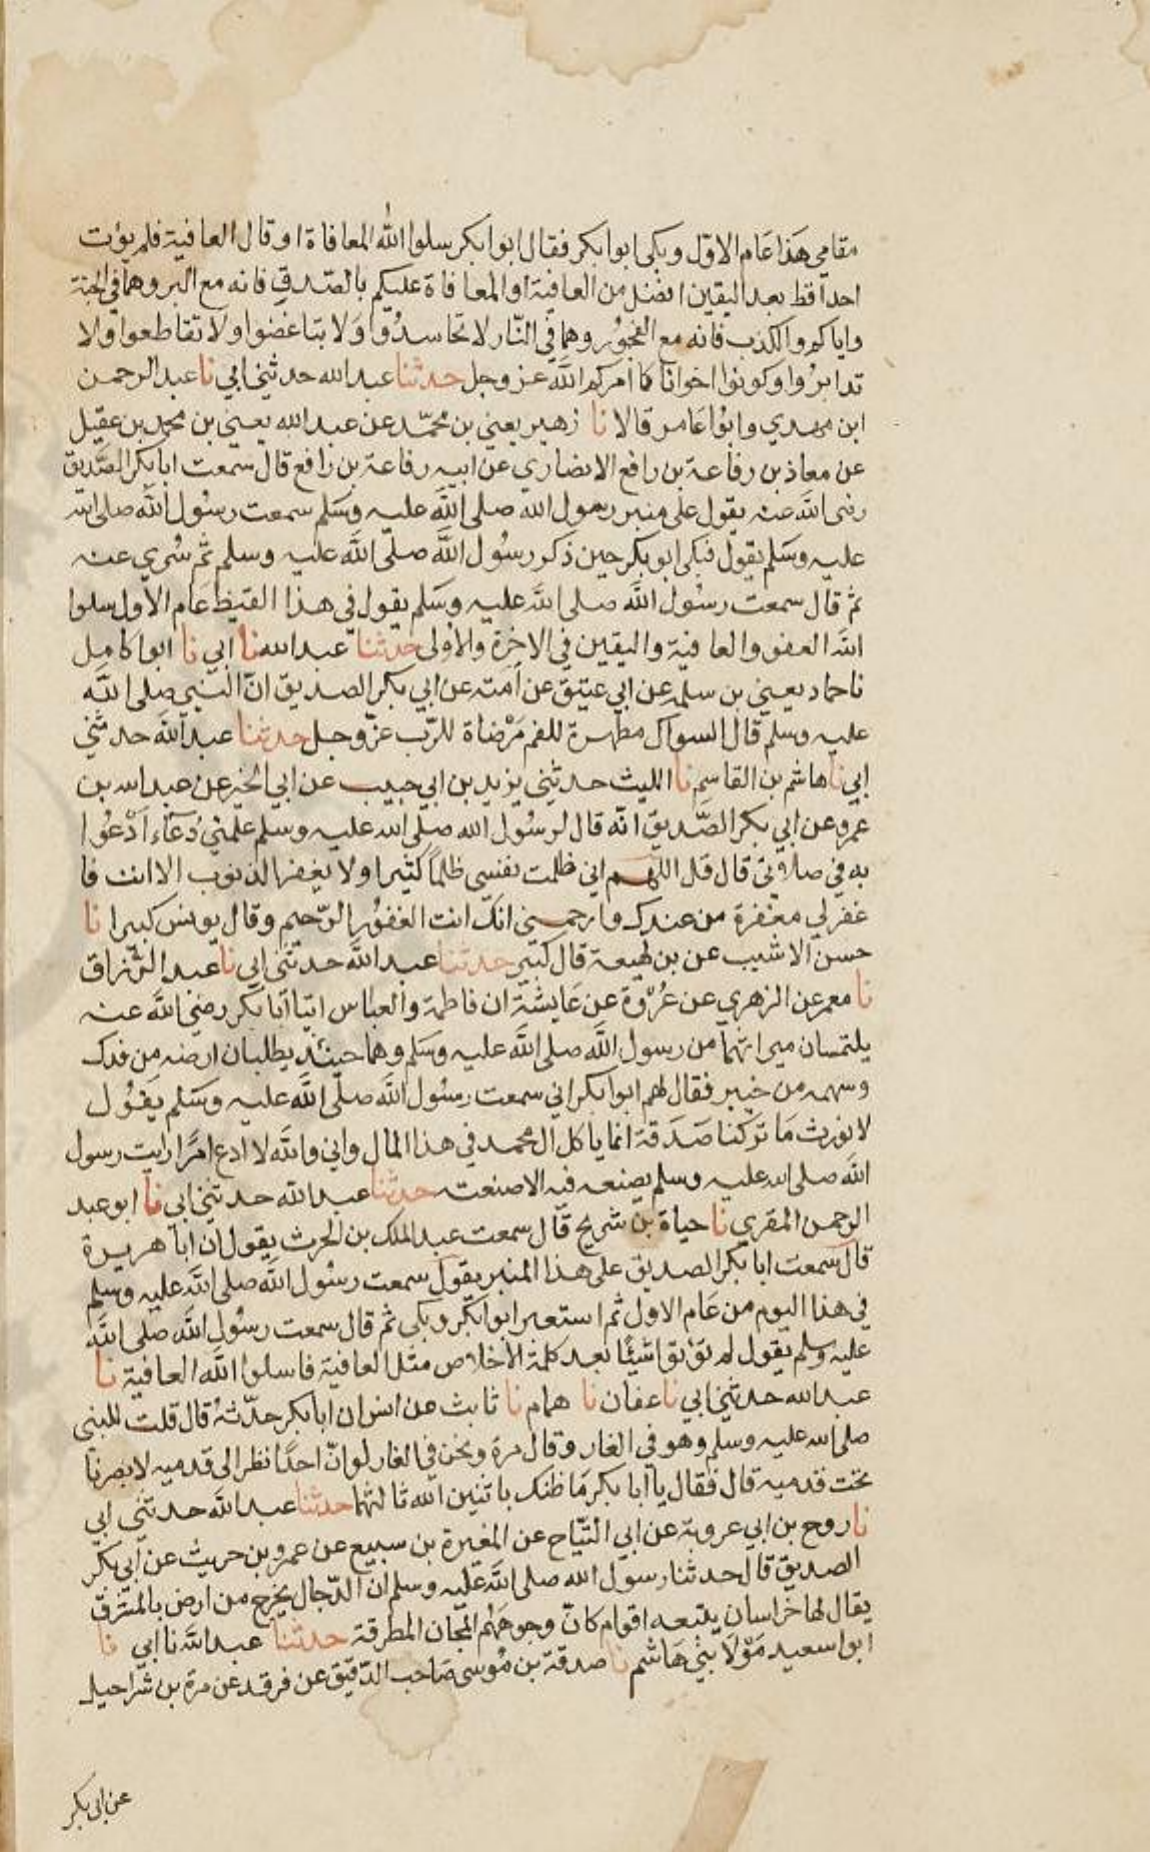 مقامي هذا عام الاول وبكى ابوا بكر فقال ابوا بكر سلوا الله المعافاة او قال العافية فلم يؤت
احدا قط بعد اليقين افضل من العافية او المعافاة عليكم بالصدق فانه مع البر وهما في الجنة
واياكم والكذب فانه مع الفجور وهما في النار لا تحاسدوا ولا تباغضوا ولا تقاطعوا ولا
تدابروا وكونوا اخوانا كما امركم الله عز وجل حدثنا عبد الله حدثني ابي نا عبد الرحمن
ابن مهدي وابوا عامر قالا نا زهير يعني بن محمد عن عبد الله يعني بن محمد بن عقيل
عن معاذ بن رفاعة بن رافع الانصاري عن ابيه رفاعة بن رافع قال سمعت ابا بكر الصديق
رضى الله عنه يقول على منبر رسول الله صلى الله عليه وسلم سمعت رسول الله صلى الله
عليه وسلم يقول فبكى ابو بكر حين ذكر رسول الله صلى الله عليه وسلم ثم سري عنه
ثم قال سمعت رسول الله صلى الله عليه وسلم يقول في هذا القيظ عام الاول سلوا
الله العفو والعافية واليقين في الاخرة والاولى حدثنا عبد الله نا ابي نا ابوا كامل
نا حماد يعني بن سلمه عن ابي عتيق عن امته عن ابي بكر الصديق ان النبي صلى الله
عليه وسلم قال السواك مطهرة للفم مرضاة للرب عز وجل حدثنا عبد الله حدثني
ابي نا هاشم بن القاسم نا الليث حدثني يزيد بن ابي حبيب عن ابي الخير عن عبد الله بن
عمرو عن ابي بكر الصديق انه قال لرسول الله صلى الله عليه وسلم علمني دعاء ادعوا
به في صلاتي قال قل اللهم اني ظلمت نفسي ظلما كثيرا ولا يغفر الذنوب الا انت فا
غفر لي مغفرة من عندك وارحمني انك انت الغفور الرحيم وقال يونس كبيرا نا
حسن الاشيب عن بن لهيعة قال كبير حدثنا عبد الله حدثني ابي نا عبد الرزاق
نا معمر عن الزهري عن عروة عن عايشة ان فاطمة والعباس اتيا ابا بكر رضي الله عنه
يلتمسان ميراثهما من رسول الله صلى الله عليه وسلم وهما حينئذ يطلبان ارضه من فدك
وسهمه من خيبر فقال لهم ابوا بكر اني سمعت رسول الله صلى الله عليه وسلم يقول
لا نورث ما تركنا صدقة انما ياكل ال محمد في هذا المال واني والله لا ادع امرا رايت رسول
الله صلى الله عليه وسلم يصنعه فيه الا صنعته حدثنا عبد الله حدثني ابي نا ابو عبد
الرحمن المقري نا حياة بن شريح قال سمعت عبد الملك بن الحرث يقول ان ابا هريرة
قال سمعت ابا بكر الصديق على هذا المنبر يقول سمعت رسول الله صلى الله عليه وسلم
في هذا اليوم من عام الاول ثم استعبر ابوا بكر وبكى ثم قال سمعت رسول الله صلى الله
عليه وسلم يقول لم تؤتوا شيئا بعد كلمة الاخلاص مثل العافية فاسلوا الله العافية نا
عبد الله حدثني ابي نا عفان نا همام نا ثابث عن انس ان ابا بكر حدثه قال قلت للنبى
صلى الله عليه وسلم وهو في الغار وقال مرة ونحن في الغار لو ان احدا نظر الى قدميه لابصرنا
تحت قدميه قال فقال يا ابا بكر ما ظنك باثنين الله ثالثهما حدثنا عبد الله حدثني ابي
نا روح بن ابي عروبة عن ابي التياح عن المغيرة بن سبيع عن عمرو بن حريث عن ابي بكر
الصديق قال حدثنا رسول الله صلى الله عليه وسلم ان الدجال يخرج من ارض بالمشرق
يقال لها خراسان يتبعه اقوام كان وجوههم المجان المطرقة حدثنا عبد الله نا ابي نا
ابوا سعيد مولا بني هاشم نا صدقة بن موسى صاحب الدقيق عن فرقد عن مرة بن شراحيل
عن ابي بكر